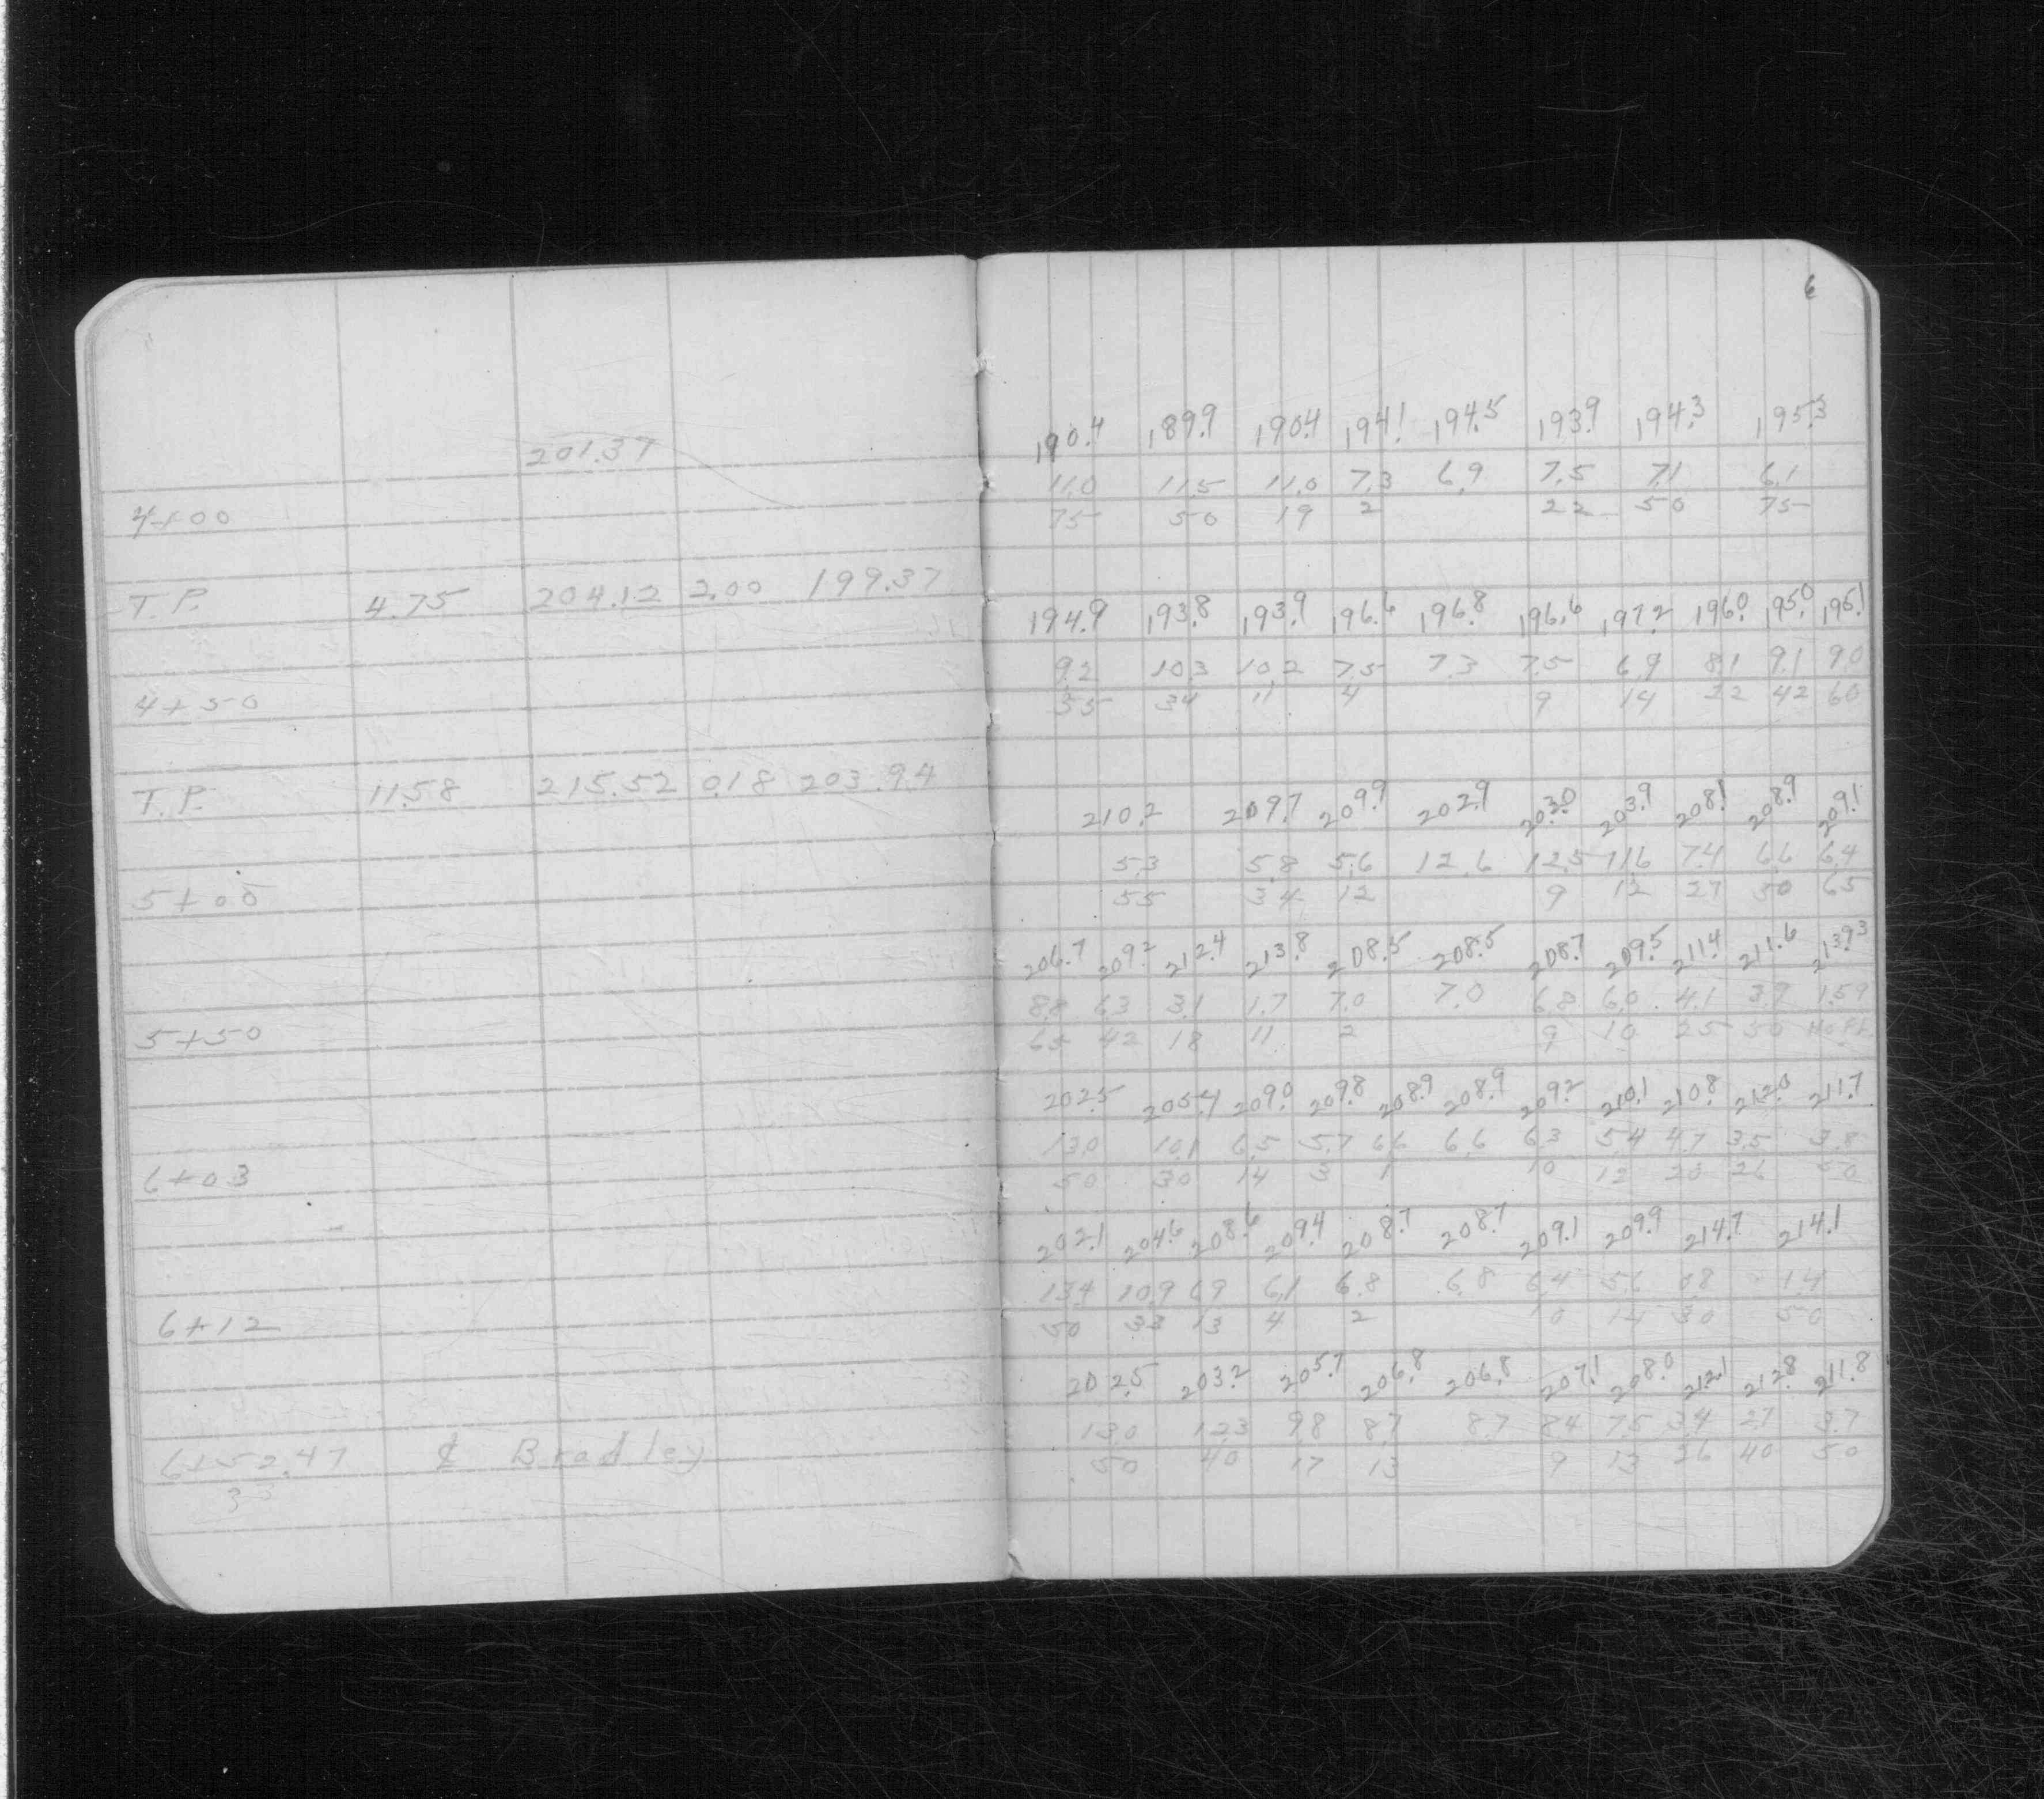 6
201.37
190.4 189.9 190.4 194.1 194.5 193.9 194.3 195.3
11.0 11.5 11.0 7.3 6.9 7.5 7.1 6.1
4+00 75 50 19 2 22 50 75
T.P. 4.75 204.12 2.00 199.37
194.9 193.8 193.9 196.6 196.8 196.6 197.2 196.0 195.0 195.1
9.2 10.3 10.2 7.5 7.3 7.5 6.9 8.1 9.1 9.0
4+50 55 34 11 4 9 14 22 42 60
T.P. 11.58 215.52 0.18 203.94
210.2 209.7 209.9 202.9 203.0 203.9 208.1 208.9 209.1
5.3 5.8 5.6 12.6 12.5 11.6 7.4 6.6 6.4
5+00 55 34 12 9 12 27 50 65
206.7 209.2 212.4 213.8 208.5 208.5 208.7 209.5 211.4 211.6 213.93
8.8 6.3 3.1 1.7 7.0 7.0 6.8 6.0 4.1 3.9 1.59
5+50 65 42 18 11 2 9 10 25 50
202.5 205.4 209.0 209.8 208.9 208.9 209.2 210.1 210.8 212.0 211.7
13.0 10.1 6.5 5.7 6.6 6.6 6.3 5.4 4.7 3.5 3.8
6+03 50 30 14 3 1 10 12 20 26 50
202.1 204.6 208.6 209.4 208.7 208.7 209.1 209.9 214.7 214.1
13.4 10.9 6.9 6.1 6.8 6.8 6.4 5.6 0.8 1.4
6+12 50 33 13 4 2 10 14 30 50
202.5 203.2 205.7 206.8 206.8 207.1 208.0 212.1 212.8 211.8
13.0 12.3 9.8 8.7 8.7 8.4 7.5 3.4 2.7 3.7
6+52.47 ₵ Bradley 50 40 17 13 9 13 26 40 50
33